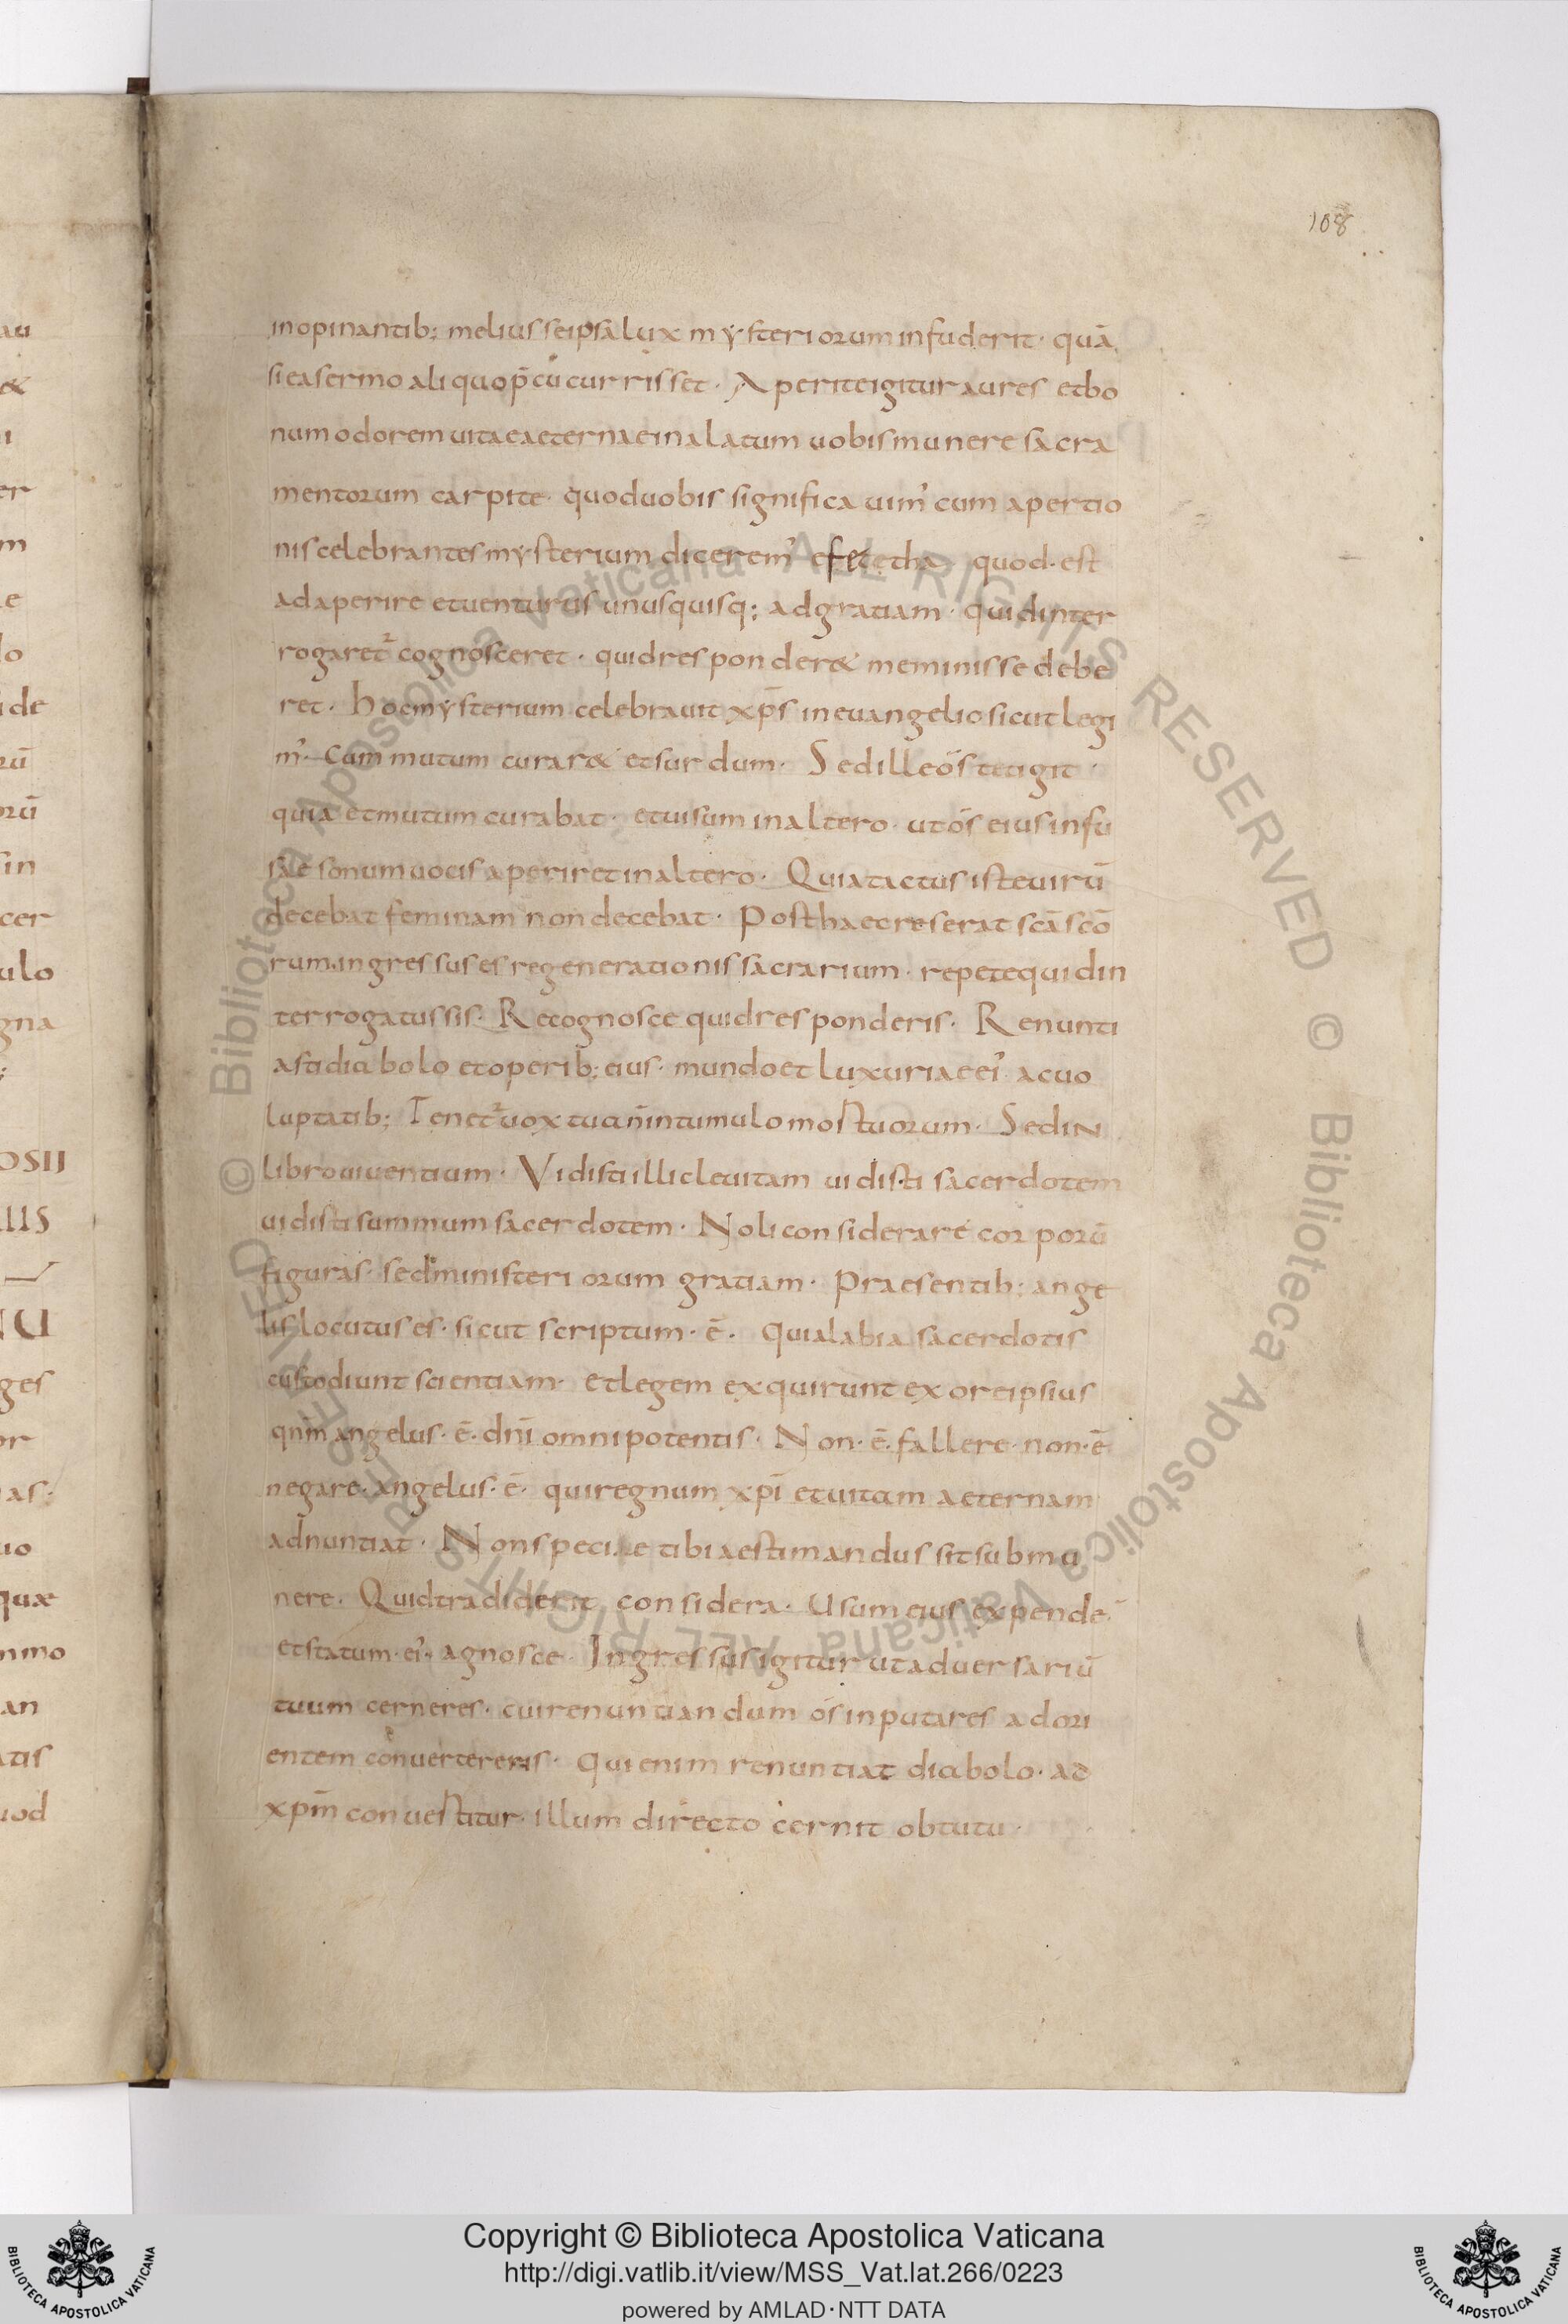 108
inopinantib; melius se ipsa lux mysteriorum infuderit · quā
si ea sermo aliquo p̄cucurrisset · Aperite igitur aures et bo
num odorem uitae aeternae inalatum uobis munere sacra
mentorum carpite · quod uobis significauim' cum apertio
nis celebrantes mysterium dicerem' effetetha quod · est
adaperire et uenturus unusquisq; ad gratiam · quid inter
rogaret' cognosceret · quid responder& meminisse debe
ret · hoc mysterium celebrauit xp̄s in euangelio sicut legi
m' · Cum mutum curar& et surdum · Sed ille ós tetigit ·
quia et mutum curabat · et uisum in altero · ut ós eius infu
sae sonum uocis aperiret in altero · Quia tactus iste uirū
decebat feminam non decebat · Post haec reserat scā scō
rum ingressus es regenerationis sacrarium · repete quid in
terrogatus sis · Recognosce quid responderis · Renunti
asti diabolo et operib; eius · mundo et luxuriae ei' ac uo
luptatib; Tenet' uox tua n̄ in tumulo mortuorum · Sed in
libro uiuentium · Vidisti illic leuitam uidisti sacerdotem
uidisti summum sacerdotem · Noli considerare corporū
figuras · sed ministeriorum gratiam · Praesentib; ange
lis locutus es · sicut scriptum · ē · quia labia sacerdotis
custodiunt scientiam · et legem exquirunt ex ore ipsius
qnm̄ angelus · ē · dnī omnipotentis · Non · ē · fallere · non · ē
negare · angelus · ē · qui regnum xpī et uitam aeternam
adnuntiat · Non specie tibi aestimandus sit sub mu
nere · Quid tradiderit considera · Usum eius expende ·
et statum · ei' · agnosce · Ingressus igitur ut aduersariū
tuum cerneres · cui renuntiandum ós inputares ad ori
entem conuertereris · Qui enim renuntiat diabolo · ad
xpm̄ conuertitur · illum directo cernit obtutu ·
© Biblioteca Apostolica Vaticana ALL RIGHTS RESERVED © Biblioteca Apostolica Vaticana ALL RIGHTS RESERVED
Copyright © Biblioteca Apostolica Vaticana
http://digi.vatlib.it/view/MSS_Vat.lat.266/0223
powered by AMLAD·NTT DATA
BIBLIOTECA APOSTOLICA VATICANA
BIBLIOTECA APOSTOLICA VATICANA